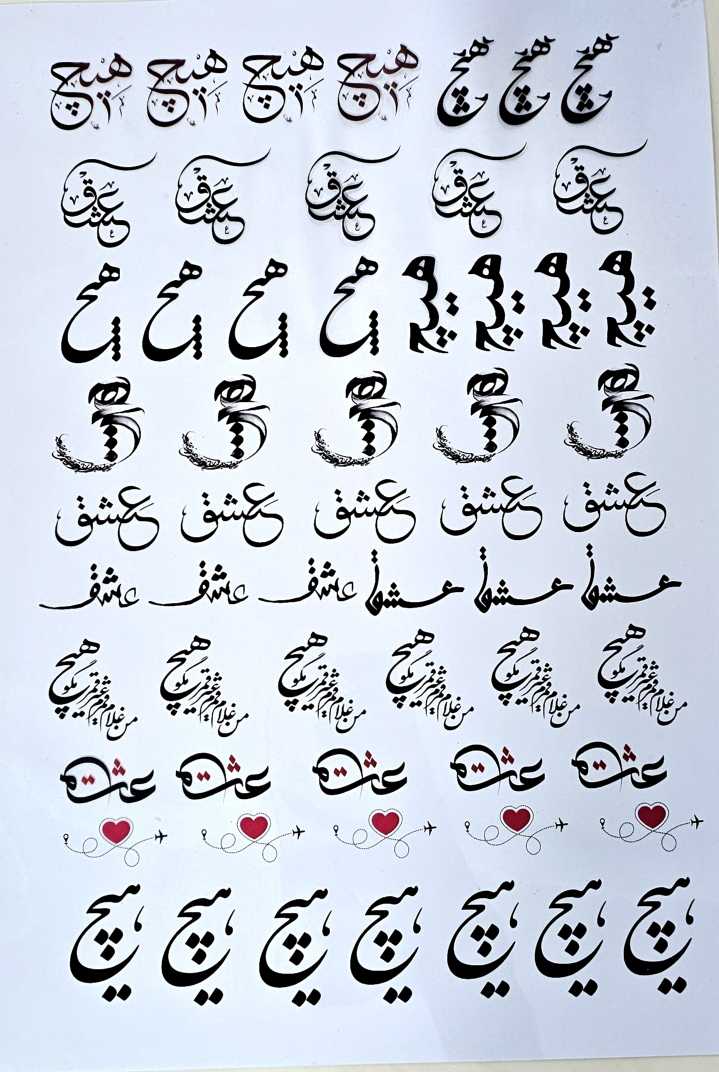 هیچ هیچ هیچ هیچ هیچ هیچ هیچ
عشق عشق عشق عشق عشق
هیچ هیچ هیچ هیچ هیچ هیچ هیچ هیچ
هیچ هیچ هیچ هیچ هیچ
عشق عشق عشق عشق عشق
عشق عشق عشق عشق عشق عشق
من غلام قمرم غیر قمر هیچ مگو من غلام قمرم غیر قمر هیچ مگو من غلام قمرم غیر قمر هیچ مگو من غلام قمرم غیر قمر هیچ مگو من غلام قمرم غیر قمر هیچ مگو من غلام قمرم غیر قمر هیچ مگو
عشق عشق عشق عشق عشق
هیچ هیچ هیچ هیچ هیچ هیچ هیچ